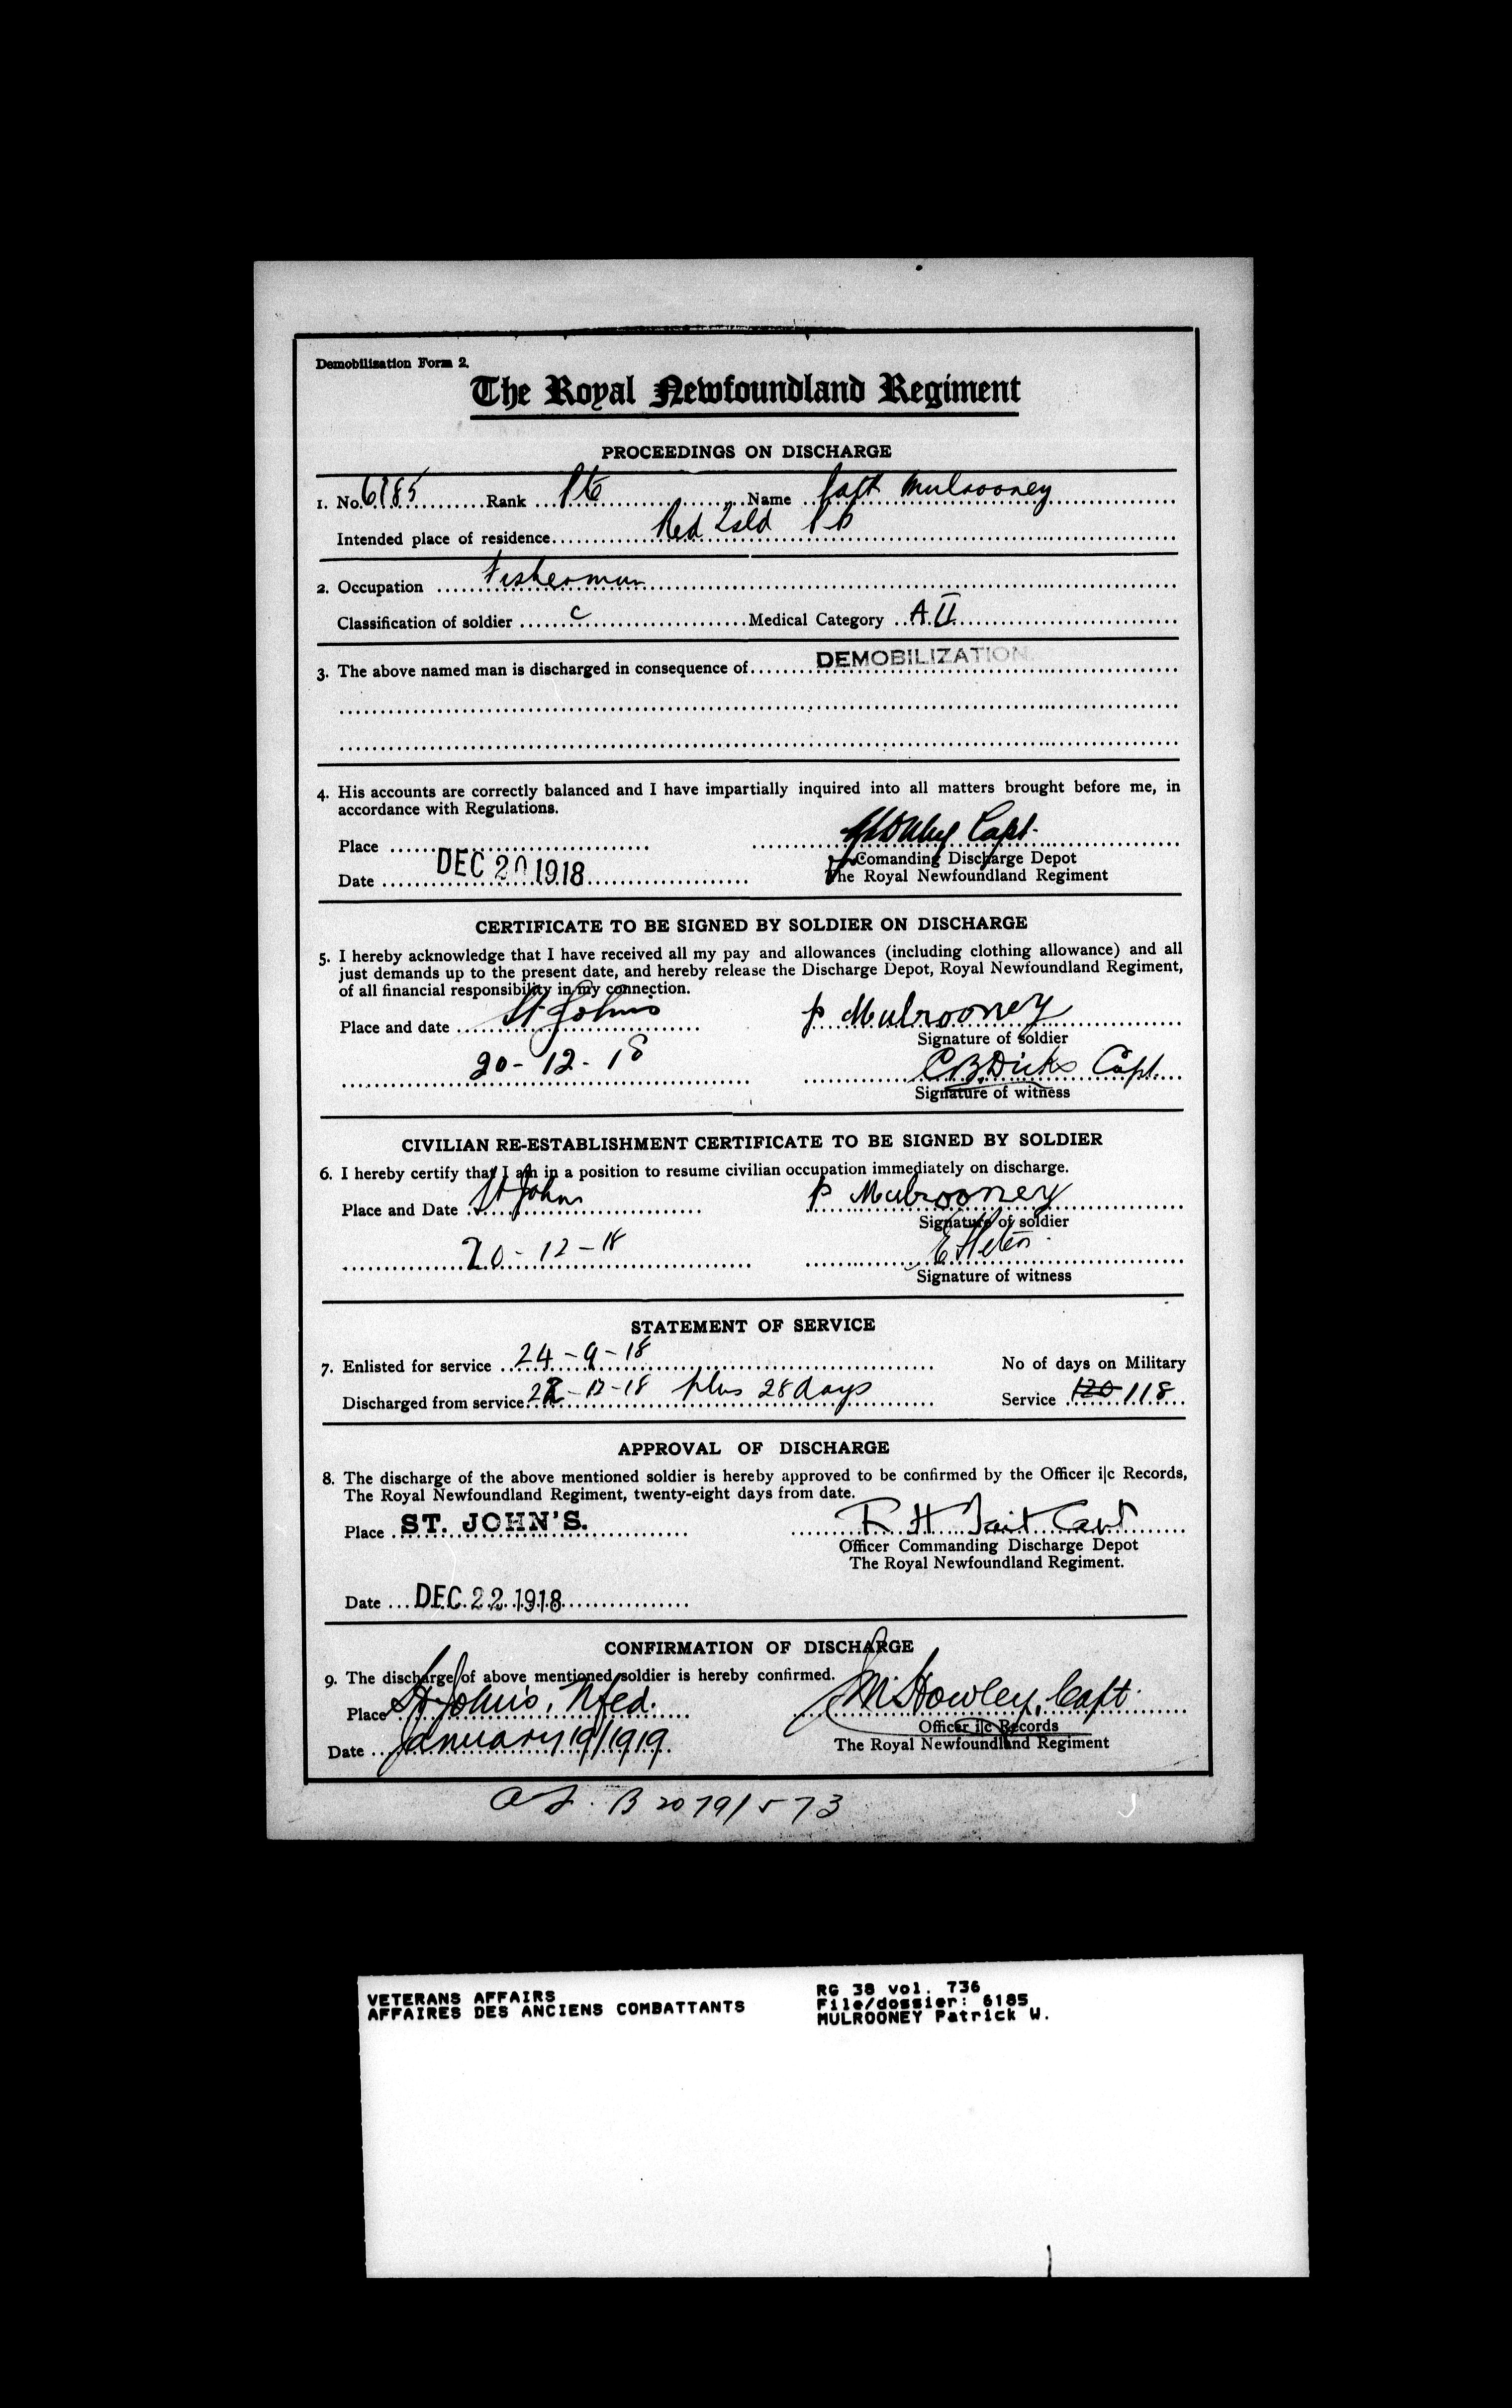 Demobilisation Form 2.
The Royal Newfoundland Regiment
PROCEEDINGS ON DISCHARGE
1. No. 6185 Rank Pte Name Patk Mulrooney
Intended place of residence Red Isld P B
2. Occupation Fisherman
Classification of soldier C Medical Category A II
3. The above named man is discharged in consequence of DEMOBILIZATION.
4. His accounts are correctly balanced and I have impartially inquired into all matters brought before me, in
accordance with Regulations.
Capt.
Place
Comanding Discharge Depot
Date DEC 20 1918
The Royal Newfoundland Regiment
CERTIFICATE TO BE SIGNED BY SOLDIER ON DISCHARGE
5. I hereby acknowledge that I have received all my pay and allowances (including clothing allowance) and all
just demands up to the present date, and hereby release the Discharge Depot, Royal Newfoundland Regiment,
of all financial responsibility in my connection.
Place and date St Johns P Mulrooney
Signature of soldier
20-12-18 C B Dicks Capt.
Signature of witness
CIVILIAN RE-ESTABLISHMENT CERTIFICATE TO BE SIGNED BY SOLDIER
6. I hereby certify that I am in a position to resume civilian occupation immediately on discharge.
Place and Date St Johns P Mulrooney
Signature of soldier
20-12-18
Signature of witness
STATEMENT OF SERVICE
7. Enlisted for service 24-9-18 No of days on Military
Discharged from service 22-12-18 plus 28 days Service 120 118
APPROVAL OF DISCHARGE
8. The discharge of the above mentioned soldier is hereby approved to be confirmed by the Officer i|c Records,
The Royal Newfoundland Regiment, twenty-eight days from date.
Place ST. JOHN'S. R H Tait Capt
Officer Commanding Discharge Depot
The Royal Newfoundland Regiment.
Date DEC 22 1918
CONFIRMATION OF DISCHARGE
9. The discharge of above mentioned soldier is hereby confirmed.
Place St John's, Nfld. M Howley, Capt.
Officer i|c Records
Date January 19/1919 The Royal Newfoundland Regiment
B 2079/573
VETERANS AFFAIRS
AFFAIRES DES ANCIENS COMBATTANTS
RG 38 vol. 736
File/dossier: 6185
MULROONEY Patrick W.